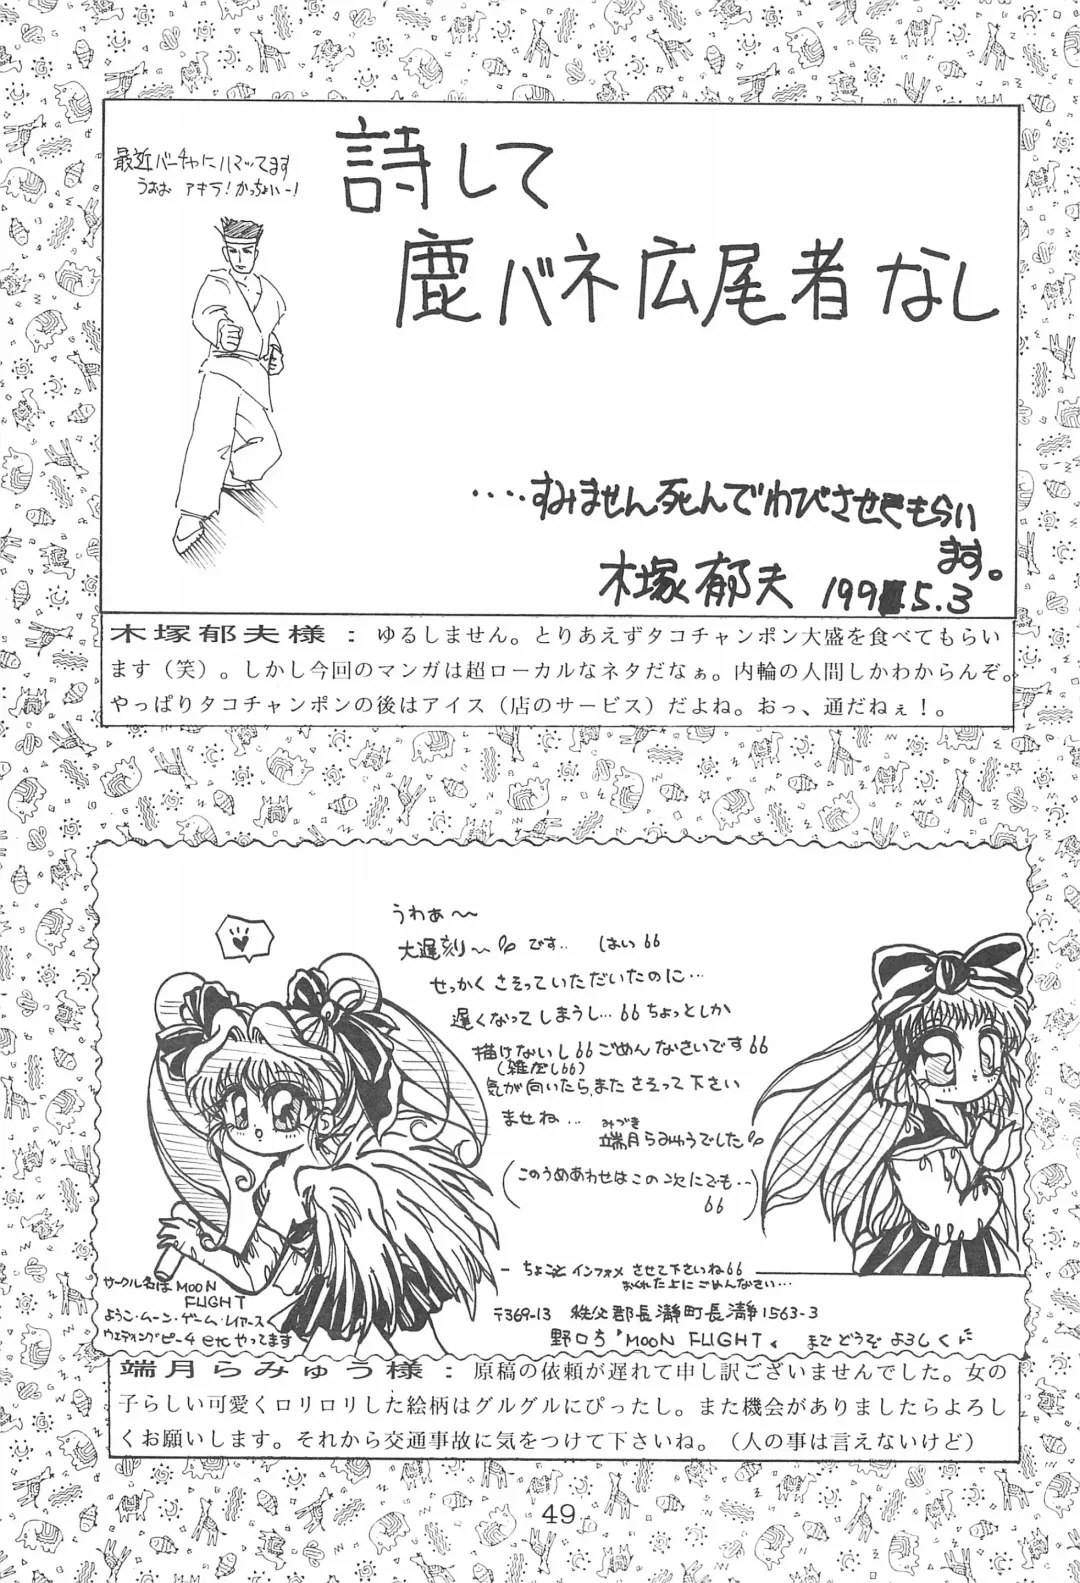 最近バーチャにハマッてます
うおお アキラ!かっちょいー!
詩して
鹿バネ広尾者なし
‥‥すみません死んでわびさせてもらい
ます。
木塚郁夫 199 5.3
木塚郁夫様：ゆるしません。とりあえずタコチャンポン大盛を食べてもらい
ます（笑）。しかし今回のマンガは超ローカルなネタだなぁ。内輪の人間しかわからんぞ。
やっぱりタコチャンポンの後はアイス（店のサービス）だよね。おっ、通だねぇ！。
うわぁ〜
大遅刻〜です‥ はい
せっかくさそっていただいたのに…
遅くなってしまうし…ちょっとしか
描けないしごめんなさいです
(雑だし)
気が向いたらまたさそって下さい
ませね…
みづき
端月らみゅうでした
(このうめあわせはこの次にでも‥)
ちょこっとインフォメさせて下さいね
おくれた上にごめんなさい…
〒369-13 秩父郡長瀞町長瀞1563-3
野口方『MOON FLIGHT』までどうぞよろしく
サークル名はMOON
FLIGHT
ようこ・ムーン・ゲーム・レイアース
ウェディングピーチetcやってます
端月らみゅう様：原稿の依頼が遅れて申し訳ございませんでした。女の
子らしい可愛くロリロリした絵柄はグルグルにぴったし。また機会がありましたらよろし
くお願いします。それから交通事故に気をつけて下さいね。（人の事は言えないけど）
49